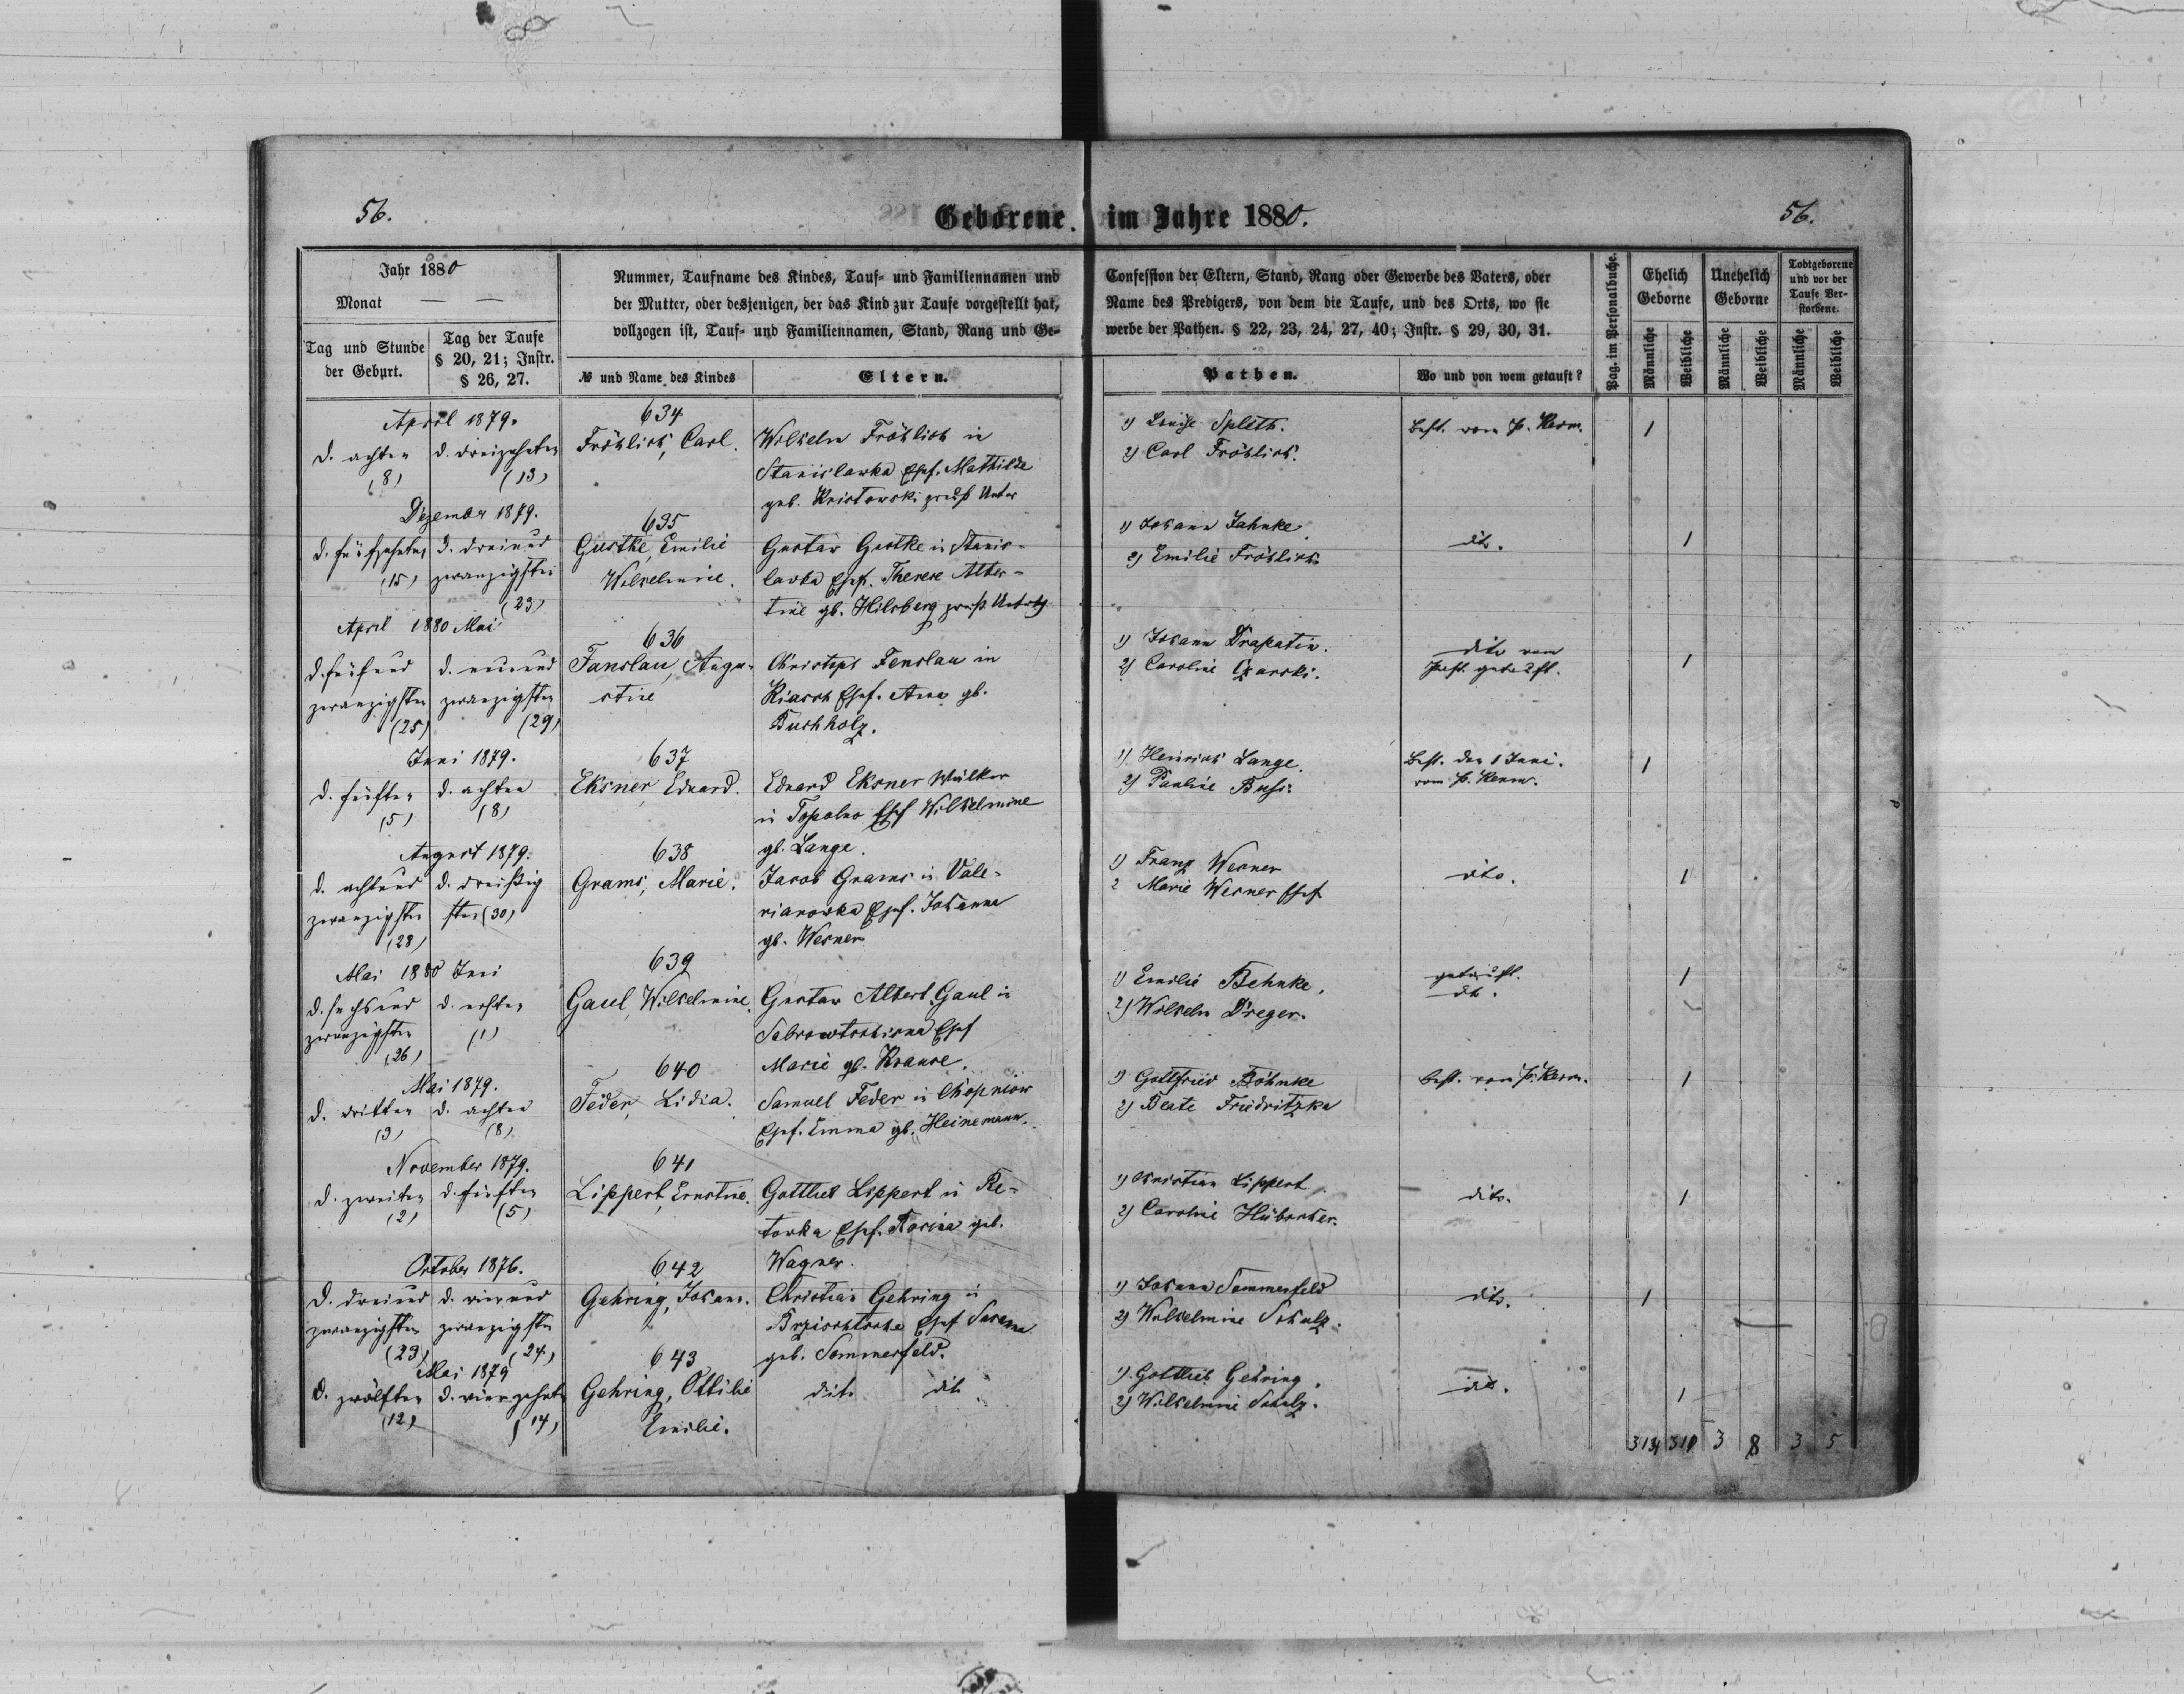 56.
Geborene im Jahre 1880.
56.
Jahr 1880
Monat — —
Tag und Stunde der Geburt.
Tag der Taufe § 20, 21; Instr. § 26, 27.
Nummer, Taufname des Kindes, Tauf- und Familiennamen und
der Mutter, oder desjenigen, der das Kind zur Taufe vorgestellt hat,
vollzogen ist, Tauf- und Familiennamen, Stand, Rang und Ge-
№ und Name des Kindes
Eltern.
Confession der Eltern, Stand, Rang oder Gewerbe des Vaters, oder
Name des Predigers, von dem die Taufe, und des Orts, wo sie
werbe der Pathen. § 22, 23, 24, 27, 40; Instr. § 29, 30, 31.
Pathen.
Wo und von wem getauft?
Pag. im Personalbuche.
Ehelich Geborne
Unehelich Geborne
Todtgeborene und vor der Taufe Verstorbene.
Männliche
Weibliche
Männliche
Weibliche
Männliche
Weibliche
April 1879.
d. achten (8)
d. dreizehnten (13)
634
Fröhlich, Carl.
Wilhelm Fröhlich in
Stanislawka Ehef. Mathilde
geb. Kristowski preuß Unter
1) Louise Splith.
2) Carl Fröhlich.
Best. vom P. Kerm.
1
Dezember 1879.
d. fünfzehnten (15)
d. dreiund zwanzigsten (23)
635
Gustke, Emilie
Wilhelmine.
Gustav Gustke in Stanis-
lawka Ehef. Therese Alber-
tine gb. Hilsberg preuß Untrth
1) Johann Jahnke.
2) Emilie Fröhlich.
dito.
1
April 1880 Mai
d. fünfund zwanzigsten (25)
d. neunund zwanzigsten (29)
636
Fanslau, Augu-
stine
Christoph Fenslau in
Kiasch Ehef. Anna gb.
Buchholz.
1) Johann Drapatin.
2) Caroline Czarski.
dito vom
Past. getauft.
1
Juni 1879.
d. fünften (5)
d. achten (8)
637
Eksner, Eduard.
Eduard Eksner Wülker
in Topolno Ehef Wilhelmine
gb. Lange.
1) Heinrich Lange.
2) Pauline Buss.
Best. den 1 Juni.
vom P. Kerm.
1
August 1879.
d. achtund zwanzigsten (28)
d. dreißig sten (30)
638
Grams, Marie.
Jacob Grams in Vale-
rianowka Ehef. Johanna
gb. Werner
1) Franz Werner
2 Marie Werner Ehef
dito.
1
Mai 1880 Juni
d. sechsund zwanzigsten (26)
d. ersten (1)
639
Gaul, Wilhelmine.
Gustav Albert Gaul in
Ehef
Marie gb. Krause.
1) Emilie Behnke.
2) Wilhelm Dreger.
getauft.
dito.
1
Mai 1879.
d. dritten (3)
d. achten (8)
640
Feder, Lidia.
Samuel Feder in Chopniow
Ehef. Emma gb. Heinemann.
1) Gottfried Böhnke
2) Beate Friedritzka
best. vom P. Kerm.
1
November 1879.
d. zweiten (2)
d. fünften (5)
641
Lippert, Ernstine.
Gottlieb Lippert in Re-
towka Ehef. Rosina geb.
Wagner.
1) Christian Lippert
2) Caroline Hübscher.
dito.
1
October 1876.
d. dreiund zwanzigsten (23)
d. vierund zwanzigsten (24)
642
Gehring, Johann.
Christian Gehring in
Brzischtsche Ehef Susanna
geb. Sommerfeld.
1) Johann Sommerfeld
2) Wilhelmine Schulz.
dito.
1
Mai 1879
d. zwölften (12)
d. vierzehnten (14)
643
Gehring, Ottilie
Emilie.
dito dito
1) Gottlieb Gehring.
2) Wilhelmine Schulz.
dito.
1
313 310 3 8 3 5